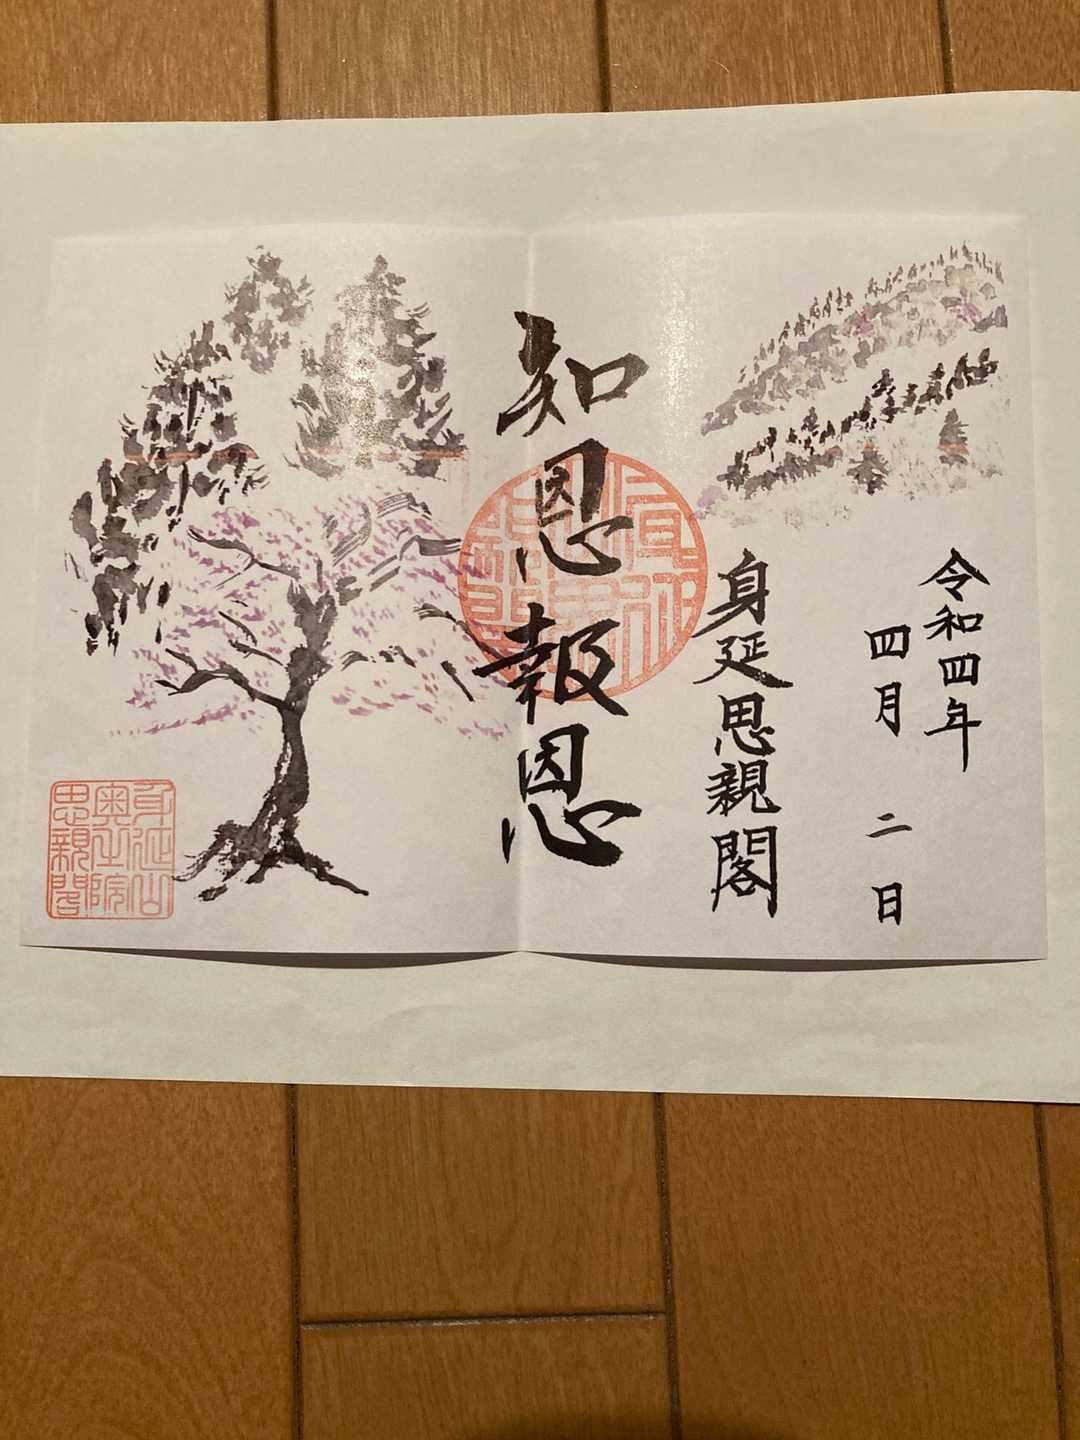 令和四年
四月二日
身延思親閣
知恩報恩
身延山
奥之院
思親閣